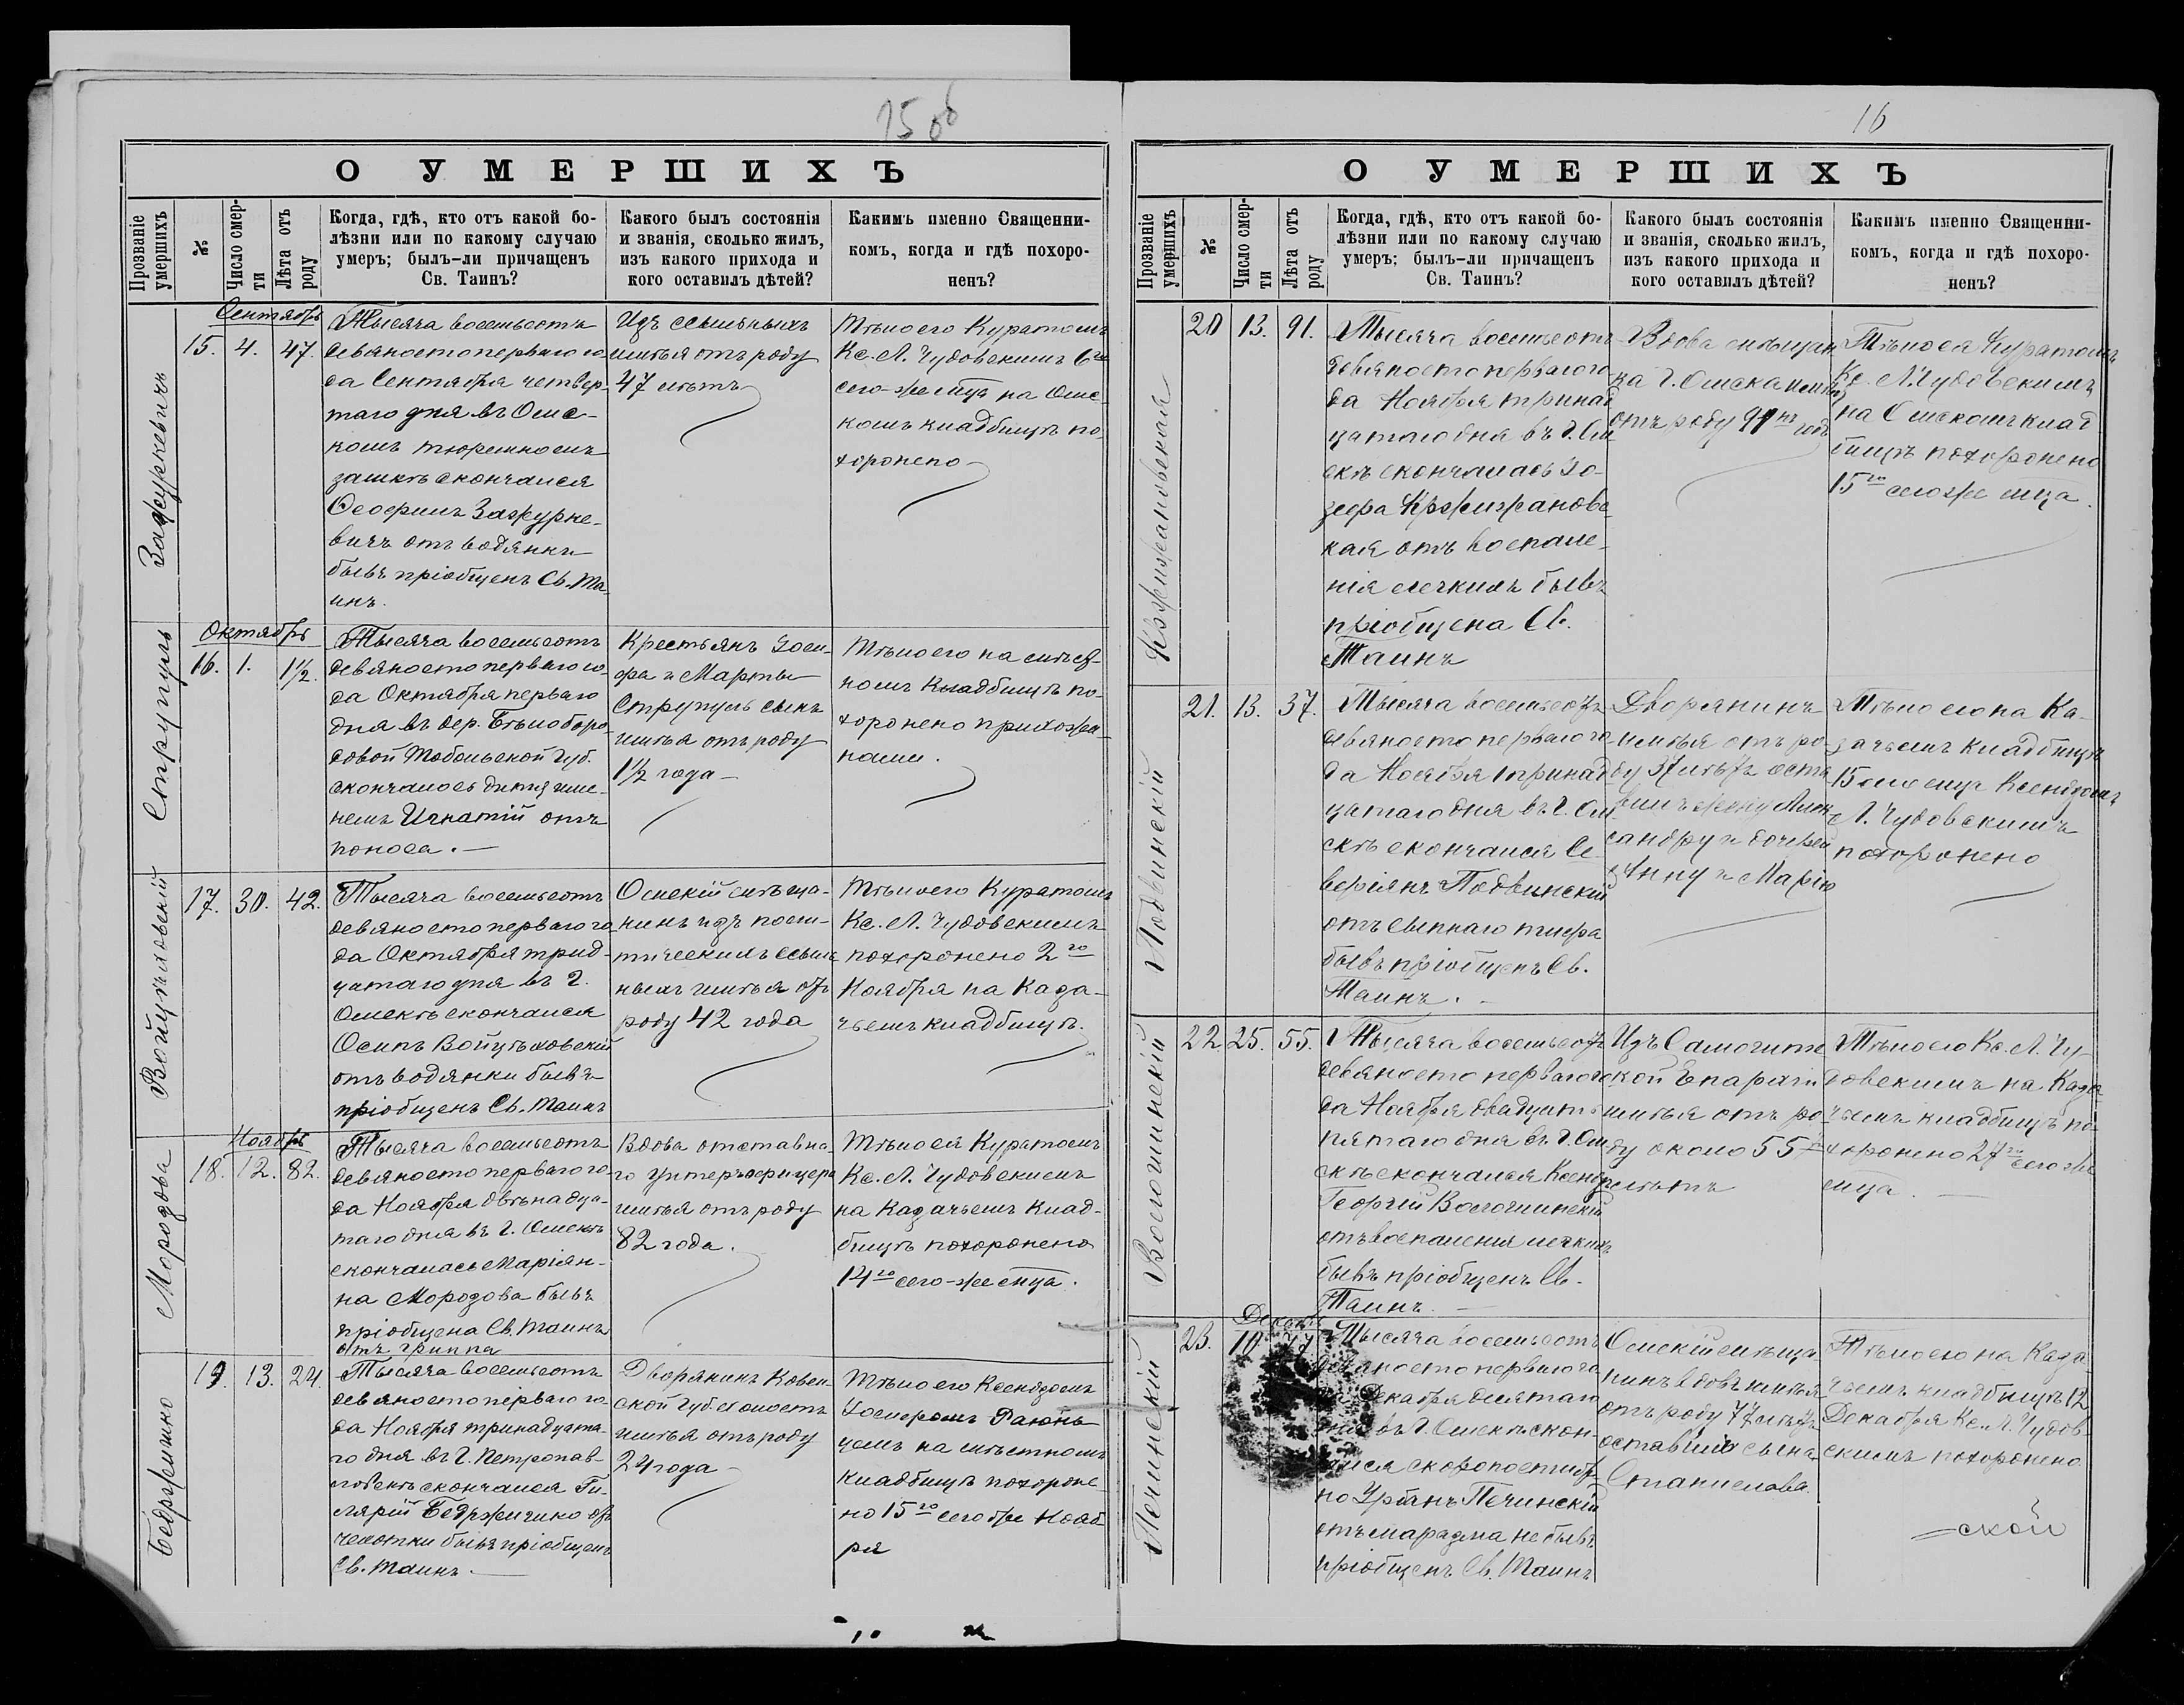 15 об
О УМЕРШИХЪ
Прозваніе умершихъ
№
Число смер-
ти
Лѣта отъ
роду
Когда, гдѣ, кто отъ какой бо-
лѣзни или по какому случаю
умеръ; былъ-ли причащенъ
Св. Таинъ?
Какого былъ состоянія
и званія, сколько жилъ,
изъ какого прихода и
кого оставилъ дѣтей?
Какимъ именно Священни-
комъ, когда и гдѣ похоро-
ненъ?
Сентябрь
15. 4. 47.
Тысяча восемьсотъ
девяностоперваго го-
да Сентября четвер-
таго дня въ Омс-
комъ тюремномъ
замкѣ скончался
Ѳеофилъ Зажурке-
вичъ отъ водянки
бывъ пріобщенъ Св. Та-
инъ.
Изъ ссыльныхъ
имѣя отъ роду
47 лѣтъ
Тѣло его Куратомъ
Кс. Л. Чудовскимъ 6го
сего-же мца на Омс-
комъ кладбищѣ по-
хоронено
Струпуль
Октябрь
16. 1. 1½.
Тысяча восемьсотъ
девяностоперваго го-
да Октября перваго
дня въ дер. Бѣлоборо-
довой Тобольской Губ.
скончалось дитя име-
немъ Игнатій отъ
поноса.
Крестьянъ Іоси-
фа и Марты
Струпуль сынъ
имѣя отъ роду
1½ года
Тѣло его на мѣст-
номъ Кладбищѣ по-
хоронено прихожа-
нами.
Войцѣховскій
17. 30. 42.
Тысяча восемьсотъ
девяностоперваго го-
да Октября трид-
цатаго дня въ г.
Омскѣ скончался
Осипъ Войцѣховскій
отъ водянки бывъ
пріобщенъ Св. Таинъ
Омскій мѣща-
нинъ изъ поли-
тическихъ ссыль-
ныхъ имѣя отъ
роду 42 года
Тѣло его Куратомъ
Кс. Л. Чудовскимъ
похоронено 2го
Ноября на Каза-
чьемъ кладбищѣ.
Морозова
Ноябрь
18. 12. 82.
Тысяча восемьсотъ
девяностоперваго го-
да Ноября двѣнадца-
таго дня въ г. Омскѣ
скончалась Маріян-
на Морозова бывъ
пріобщена Св. Таинъ
отъ гриппа
Вдова отставна-
го Унтеръ-офицера
имѣя отъ роду
82 года.
Тѣло ея Куратомъ
Кс. Л. Чудовскимъ
на Казачьемъ Клад-
бищѣ похоронено
14го сего-же мца.
19. 13. 24.
Тысяча восемьсотъ
девяностоперваго го-
да Ноября тринадцата-
го дня въ г. Петропав-
ловскѣ скончался Ги-
лярій
чахотки бывъ пріобщенъ
Св. Таинъ.
Дворянинъ Ковен-
ской Губ. холостъ
имѣя отъ роду
24 года
Тѣло его Ксендзомъ
на мѣстномъ
кладбищѣ похороне
но 15го сего же Нояб-
ря
16
О УМЕРШИХЪ
Прозваніе умершихъ
№
Число смер-
ти
Лѣта отъ
роду
Когда, гдѣ, кто отъ какой бо-
лѣзни или по какому случаю
умеръ; былъ-ли причащенъ
Св. Таинъ?
Какого былъ состоянія
и званія, сколько жилъ,
изъ какого прихода и
кого оставилъ дѣтей?
Какимъ именно Священни-
комъ, когда и гдѣ похоро-
ненъ?
Кржижановская
20 13. 91.
Тысяча восемьсотъ
девяностоперваго го
да Ноября тринад
цатаго дня въ г. Ом
скѣ скончалась Іо-
зефа Кржижановс-
кая отъ воспале-
нія легкихъ бывъ
пріобщена Св.
Таинъ
Вдова мѣщан
ка г. Омска имѣя
отъ роду 91 годъ
Тѣло ея Куратомъ
Кс. Л. Чудовскимъ
на Омскомъ клад
бищѣ похоронено
15го сего же мца.
Подвинскій
21. 13. 37.
Тысяча восемьсотъ
девяностоперваго го
да Ноября тринад
цатаго дня въ г. Ом
скѣ скончался Се-
веріянъ Подвинскій
отъ сыпнаго тифа
бывъ пріобщенъ Св.
Таинъ.
Дворянинъ
имѣя отъ ро-
ду 37 лѣтъ оста
вилъ жену Алек
сандру и дочерей
Анну и Марію
Тѣло его на Ка-
зачьемъ кладбищѣ
15 сего мца Ксендзомъ
Л. Чудовскимъ
похоронено
Вологинскій
22. 25. 55.
Тысяча восемьсотъ
девяностоперваго го
да Ноября двадцать
пятаго дня въ г. Ом
скѣ скончался Ксендзъ
Георгій Вологинскій
отъ воспаленія легкихъ
бывъ пріобщенъ Св.
Таинъ.
Изъ Самогитс
кой Епархіи
имѣя отъ ро-
ду около 55
лѣтъ
Тѣло его Кс. Л. Чу-
довскимъ на Каза
чьемъ кладбищѣ по-
хоронено 27го сего же
мца.
Печинскій
23. 10 77
Тысяча восемьсотъ
девяностоперваго го
да Декабря десятаго
дня въ г. Омскѣ скон-
чался скоропостиж-
но Урбанъ Печинскій
отъ маразма не бывъ
пріобщенъ Св. Таинъ
Омскій мѣща
нинъ вдовъ имѣя
отъ роду 77 лѣтъ
оставилъ сына
Станислава.
Тѣло его на Каза
чьемъ кладбищѣ 12
Декабря Кс. Л. Чудов-
скимъ похоронено